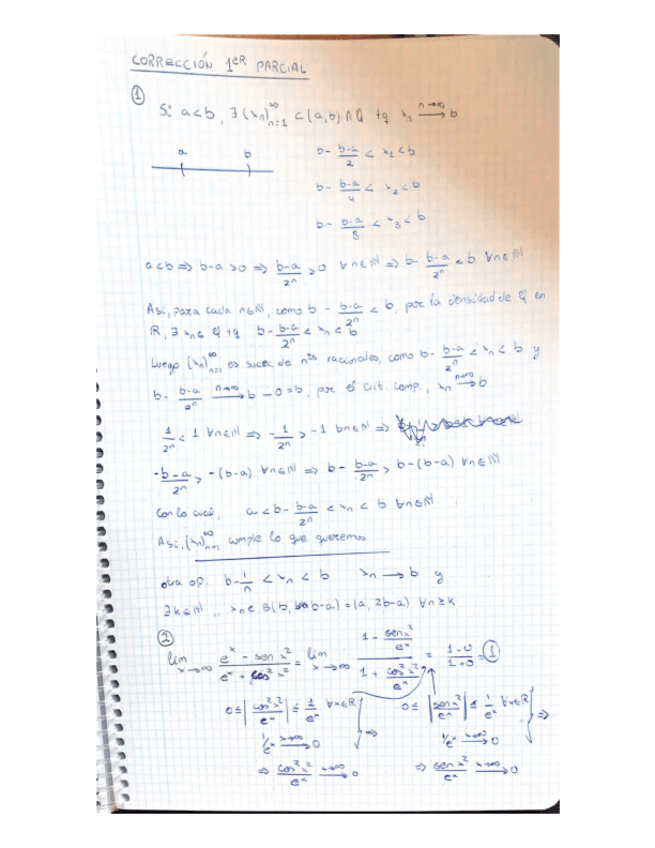 CORRECCIÓN 1ER PARCIAL
①
Si a<b, ∃ (xₙ)ₙ₌₁^∞ ⊂ (a,b)∩Q tq xₙ --n→∞--> b
a b
b - (b-a)/2 < x₁ < b
b - (b-a)/4 < x₂ < b
b - (b-a)/8 < x₃ < b
a<b ⇒ b-a>0 ⇒ (b-a)/2ⁿ > 0 ∀n∈ℕ ⇒ b - (b-a)/2ⁿ < b ∀n∈ℕ
Así, para cada n∈ℕ, como b - (b-a)/2ⁿ < b, por la densidad de Q en
R, ∃ xₙ∈Q tq b - (b-a)/2ⁿ < xₙ < b
Luego (xₙ)ₙ₌₁^∞ es suces. de nºs racionales, como b - (b-a)/2ⁿ < xₙ < b y
b - (b-a)/2ⁿ --n→∞--> b - 0 = b, por el crit. comp., xₙ --n→∞--> b
1/2ⁿ < 1 ∀n∈ℕ ⇒ -1/2ⁿ > -1 ∀n∈ℕ ⇒
-(b-a)/2ⁿ > -(b-a) ∀n∈ℕ ⇒ b - (b-a)/2ⁿ > b-(b-a) ∀n∈ℕ
Con lo cual, a < b - (b-a)/2ⁿ < xₙ < b ∀n∈ℕ
Así, (xₙ)ₙ₌₁^∞ cumple lo que queremos
otra op. b - 1/n < xₙ < b xₙ → b y
∃k∈ℕ xₙ∈B(b, b-a) = (a, 2b-a) ∀n≥k
②
lim x→∞ (eˣ - sen x²)/(eˣ + cos² x²) = lim x→∞ (1 - sen x²/eˣ)/(1 + cos² x²/eˣ) = (1-0)/(1+0) = ①
0 ≤ |cos² x²/eˣ| ≤ 1/eˣ ∀x∈R 0 ≤ |sen x²/eˣ| ≤ 1/eˣ ∀x∈R
1/eˣ --x→∞--> 0 ⇒ 1/eˣ --x→∞--> 0 ⇒
⇒ cos² x²/eˣ --x→∞--> 0 ⇒ sen x²/eˣ --x→∞--> 0